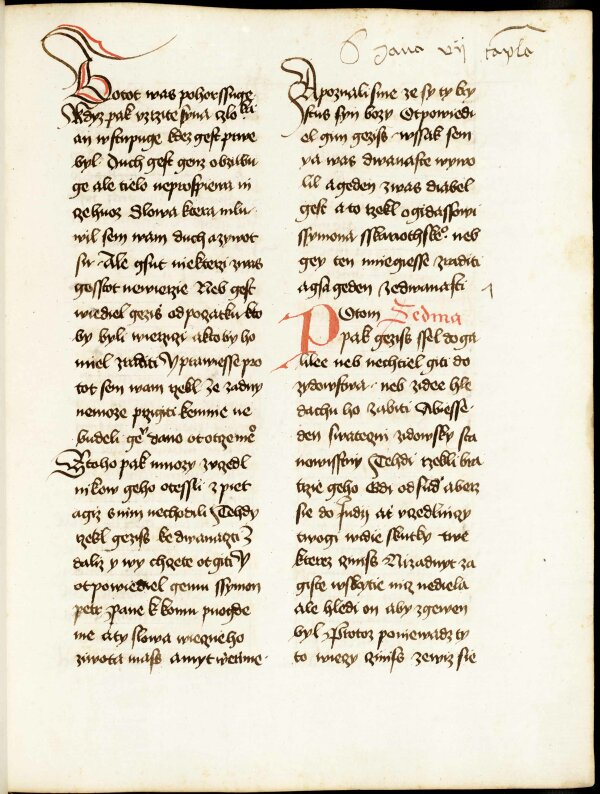 6 Jana vij capla
Totot was pohorssuge
Kdyz pak vzrzite syna czlowieka
an wstupuge kdez gest prwe
byl Duch gest genz obziwu
ge ale tielo neprospiewa ni
czehuoz Slowa ktera mlu
wil sem wam duch a zywot
su Ale gsut niekterzi z was
gessto newierzie Neb gest
wiediel gezis od poczatku kto
by byli wierzici a kto by ho
miel zraditi Y prawiesse pro
tot sem wam rzekl Ze zadny
nemoze przigiti ke mnie ne
budeli gemu dano ot otcze meho
Z toho pak mnozy z vczedl
nikow geho otessli z piet
a giz s nim nechodili Tehdy
rzekl gezis ke dwanaczti
zdaliz y wy chczete ot giti Y
ot powiediel gemu ssymon
petr Pane k komu puogde
me a ty slowa wieczneho
ziwota mass A my t wierime
A poznali sme ze sy ty kry
stus syn bozy Otpowiedi
el gim gezis wssak sem
ya was dwanaste wywo
lil a geden z was diabel
gest a to rzekl o gidassowi
ssymona sskariothskeho neb
gey ten mniegiesse zraditi
a gsa geden ze dwanasti
Sedma
Potom
pak gezis ssel do ga
lilee neb nechtiel giti do
zydowstwa neb zidee hle
dachu ho zabiti Abiesse
den swateczni zydowsky sta
nowisstny Tehdi rzekli bra
trzie geho Gdi odsud a berz
sie do Judij at y vczedlniczy
twogi widie skutky twe
kterez czinis Nizadny t za
giste wskrytie nicz nediela
ale hledi on aby zgewen
byl Protoz poniewadz ty
to wieczy czinis zewiz sie